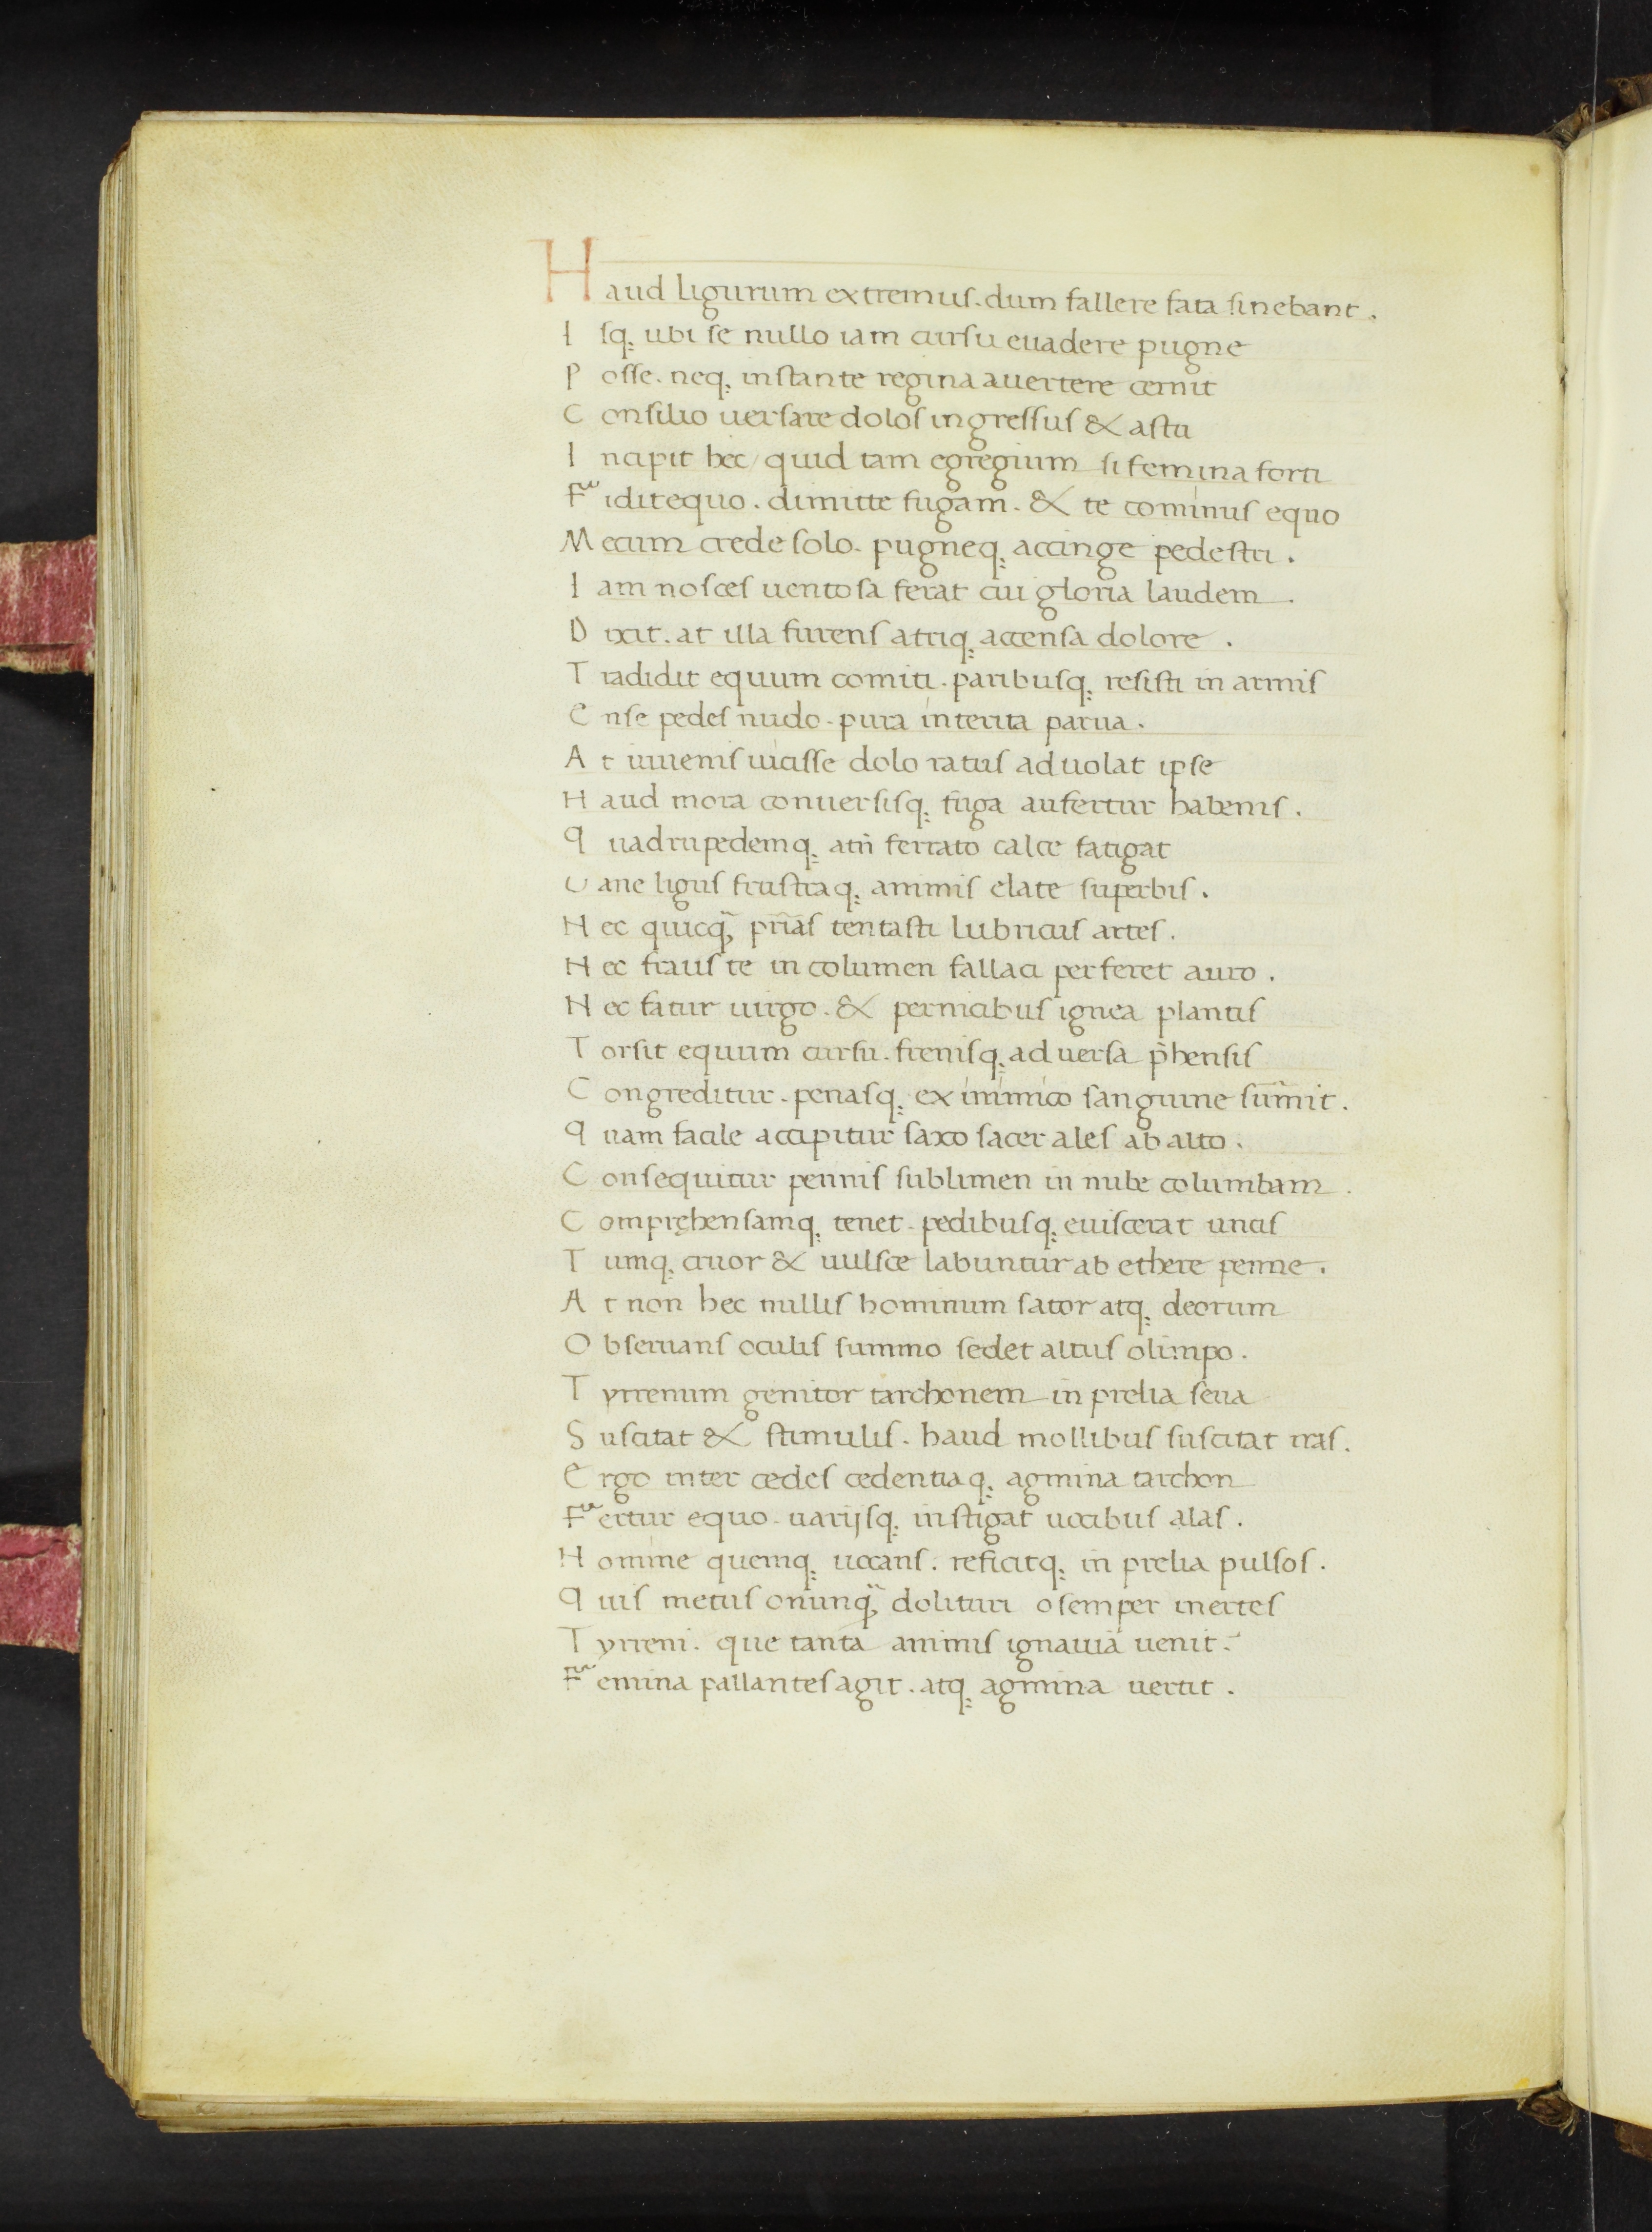 Haud ligurum extremus. dum fallere fata sinebant.
Isq; ubi se nullo iam cursu euadere pugne
Posse. neq; instante regina auertere cernit
Consilio uersare dolos ingressus & astu
Incipit hec / quid tam egregium si femina forti
Fidit equo. dimitte fugam. & te cominus equo
Mecum crede solo. pugneq; accinge pedestri.
Iam nosces uentosa ferat cui gloria laudem.
Dixit. at illa furens acriq; accensa dolore.
Tradidit equum comiti. paribusq; resisti in armis
Ense pedes nudo. pura interita parua.
At iuuenis uicisse dolo ratus aduolat ipse
Haud mora conuersisq; fuga aufertur habenis.
Quadrupedemq; atri ferrato calce fatigat
Vane ligus frustraq; animis elate superbis.
Nec quicq̃; prias tentasti lubricus artes.
Nec fraus te incolumen fallaci perferet auro.
Hec fatur uirgo. & pernicibus ignea plantis
Torsit equum cursu. frenisq; aduersa p̃hensis
Congreditur. penasq; ex inimico sanguine sumit.
Quam facile accipitur saxo sacer ales ab alto.
Consequitur pennis sublimen in nube columbam.
Comprehensamq; tenet. pedibusq; euiscerat uncis
Tumq; cruor & uulsce labuntur ab ethere penne.
At non hec nullis hominum sator atq; deorum
Obseruans oculis summo sedet altus olimpo.
Tyrrenum genitor tarchonem in prelia seua
Suscitat & stimulis. haud mollibus suscitat iras.
Ergo inter cedes cedentiaq; agmina tarchon
Fertur equo. uarijsq; instigat uocibus alas.
Homine quemq; uocans. reficitq; in prelia pulsos.
Quis metus o nunq̃; dolituri o semper inertes
Tyrreni. que tanta animis ignauia uenit.
Femina pallantes agit. atq; agmina uertit.